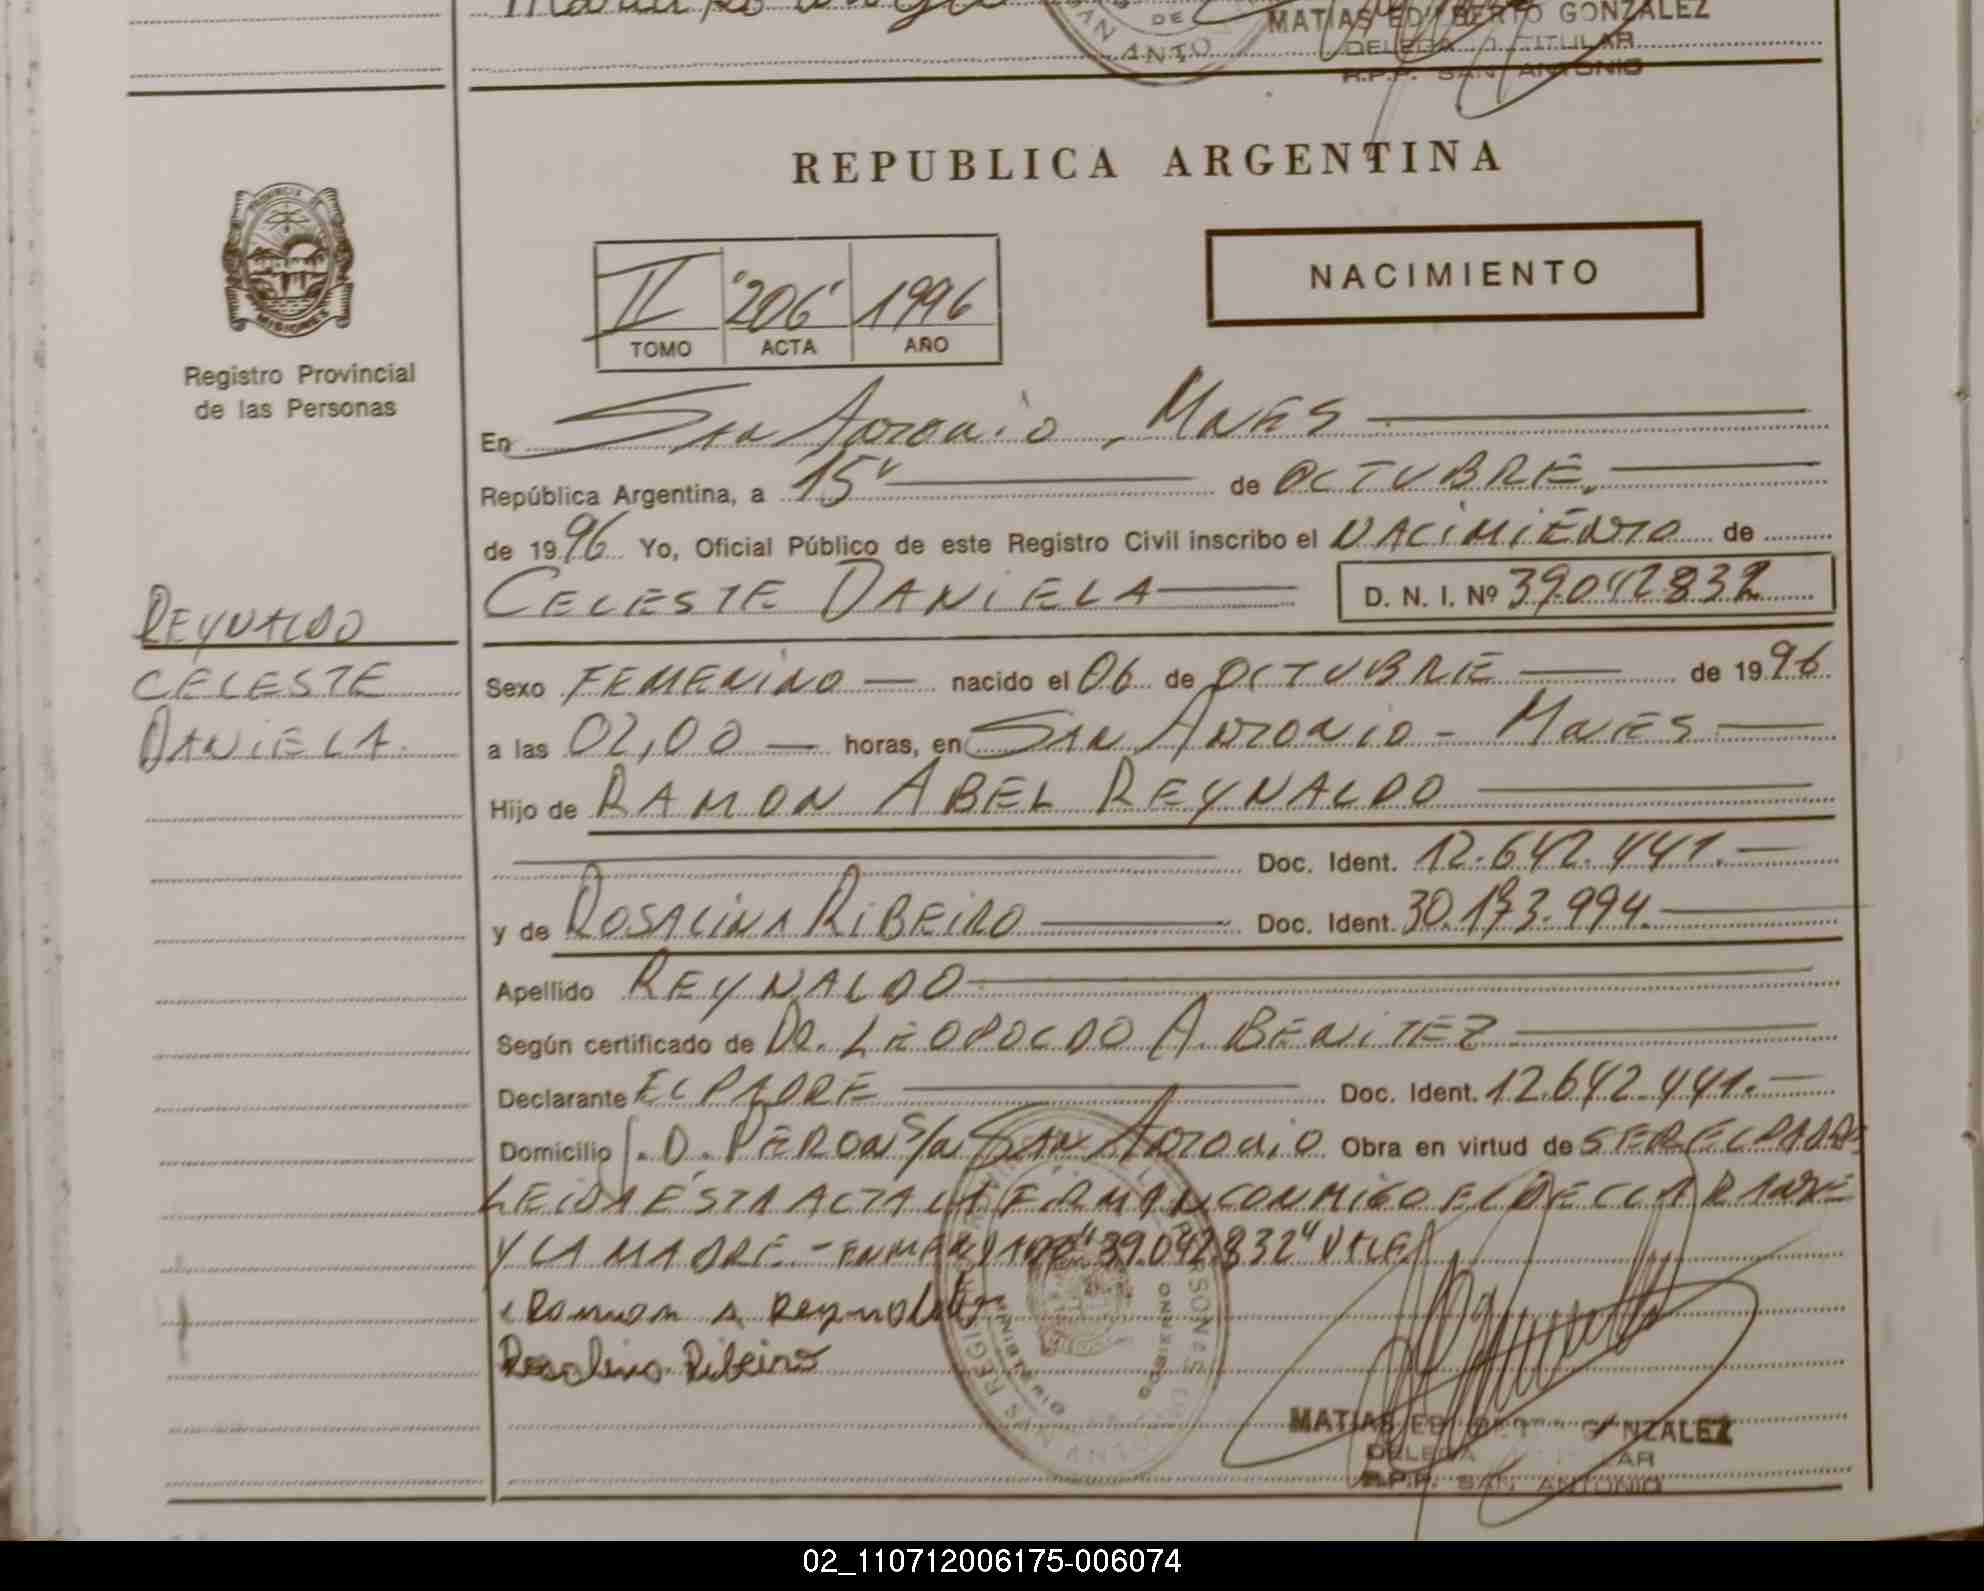 MATIAS EDILBERTO GONZALEZ
DELEGADO TITULAR
R.P.P. SAN ANTONIO
REPUBLICA ARGENTINA
PROVINCIA DE
MISIONES
Registro Provincial
de las Personas
II "206" 1996
TOMO ACTA AÑO
NACIMIENTO
En San Antonio, Mnes
República Argentina, a 15 de OCTUBRE,
de 1996 Yo, Oficial Público de este Registro Civil inscribo el NACIMIENTO de
CELESTE DANIELA D. N. I. Nº 39.042.832
REYNALDO
CELESTE
DANIELA.
Sexo FEMENINO nacido el 06 de OCTUBRE de 1996
a las 02,00 horas, en SAN ANTONIO - MNES
Hijo de RAMON ABEL REYNALDO
Doc. Ident. 12.642.441.
y de ROSALINA RIBEIRO Doc. Ident. 30.173.994.
Apellido REYNALDO
Según certificado de DR. LEOPOLDO A. BENITEZ
Declarante EL PADRE Doc. Ident. 12.642.441.
Domicilio J.D. PERON S/n SAN ANTONIO. Obra en virtud de SER EL PADRE
LEIDA ESTA ACTA LA FIRMAN CONMIGO EL DECLARANTE
Y LA MADRE - ENMENDADO "39.042.832" VALE
Ramon A Reynaldo
Rosalina Ribeiro
MATIAS EDILBERTO GONZALEZ
DELEGADO TITULAR
R.P.P. SAN ANTONIO
02_110712006175-006074